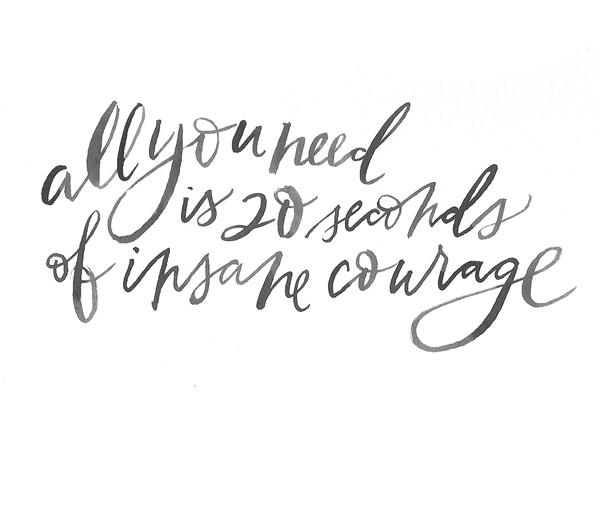 all you need
is 20 seconds
of insane courage